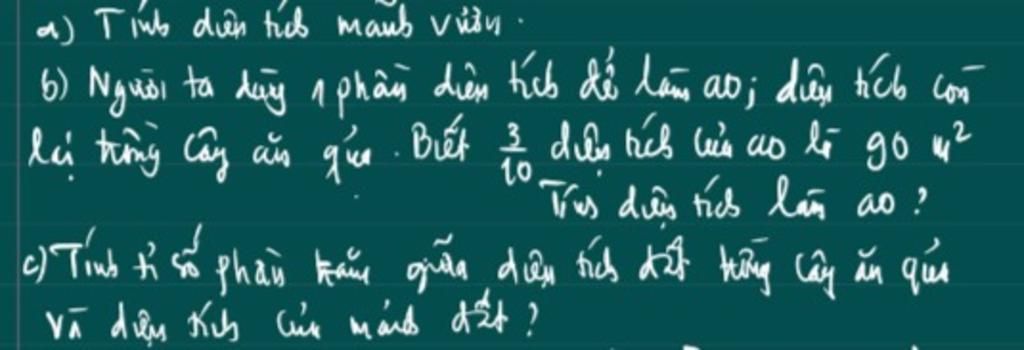 a) Tính diện tích mảnh vườn.
b) Người ta dùng 1 phần diện tích để làm ao; diện tích còn
lại trồng cây ăn quả. Biết 3/10 diện tích của ao là 90 m²
Tính diện tích làm ao?
c) Tính tỉ số phần trăm giữa diện tích đất trồng cây ăn quả
và diện tích của mảnh đất?